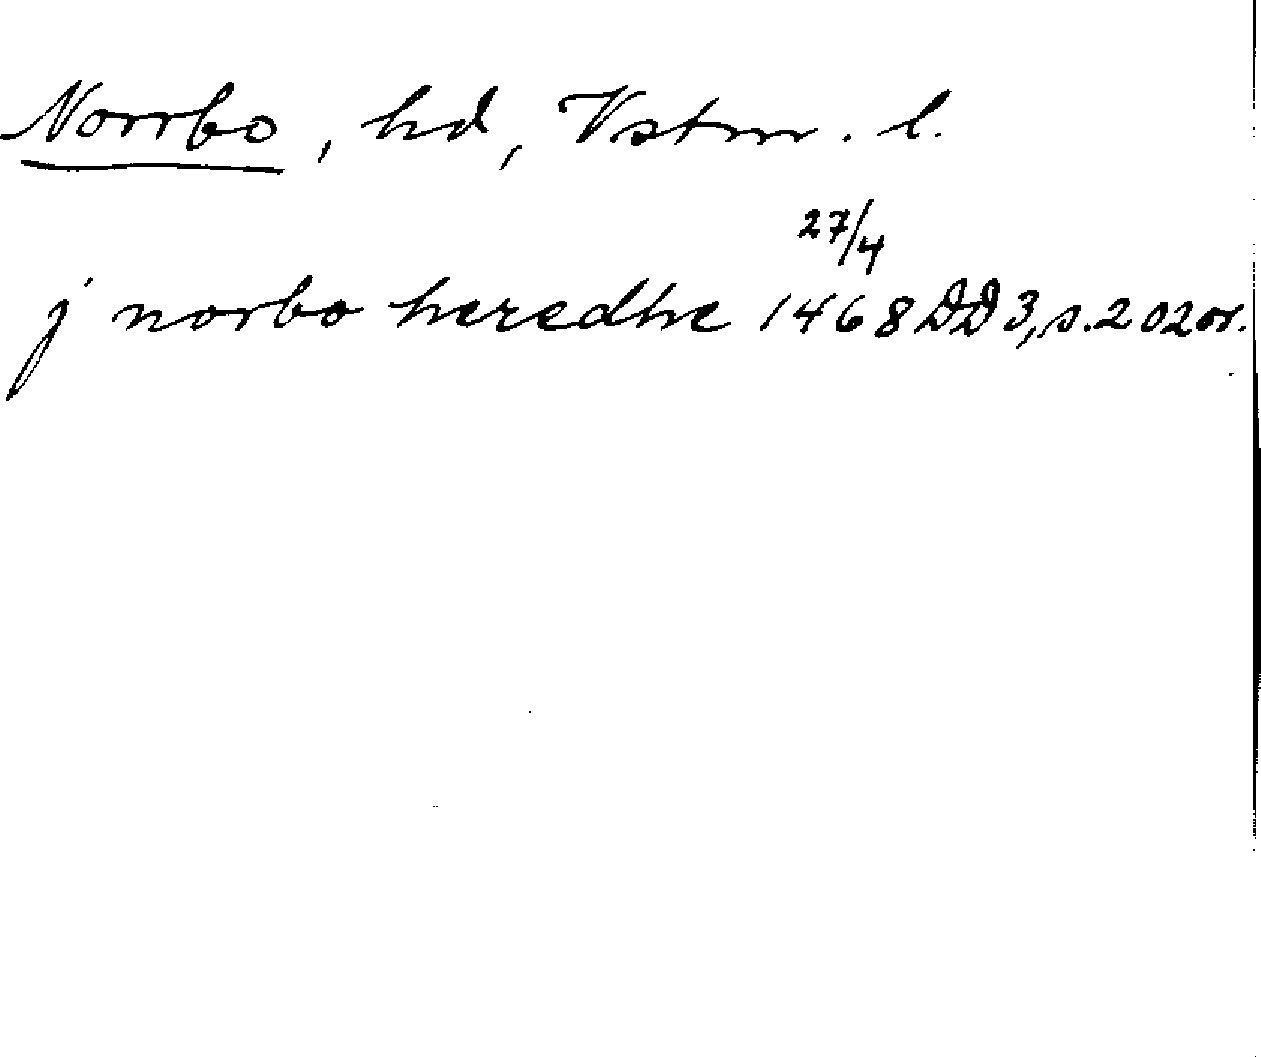 Norrbo, hd, Vstm. l.
27/4
j norbo heredhe 1468 DD 3, s. 202 or.